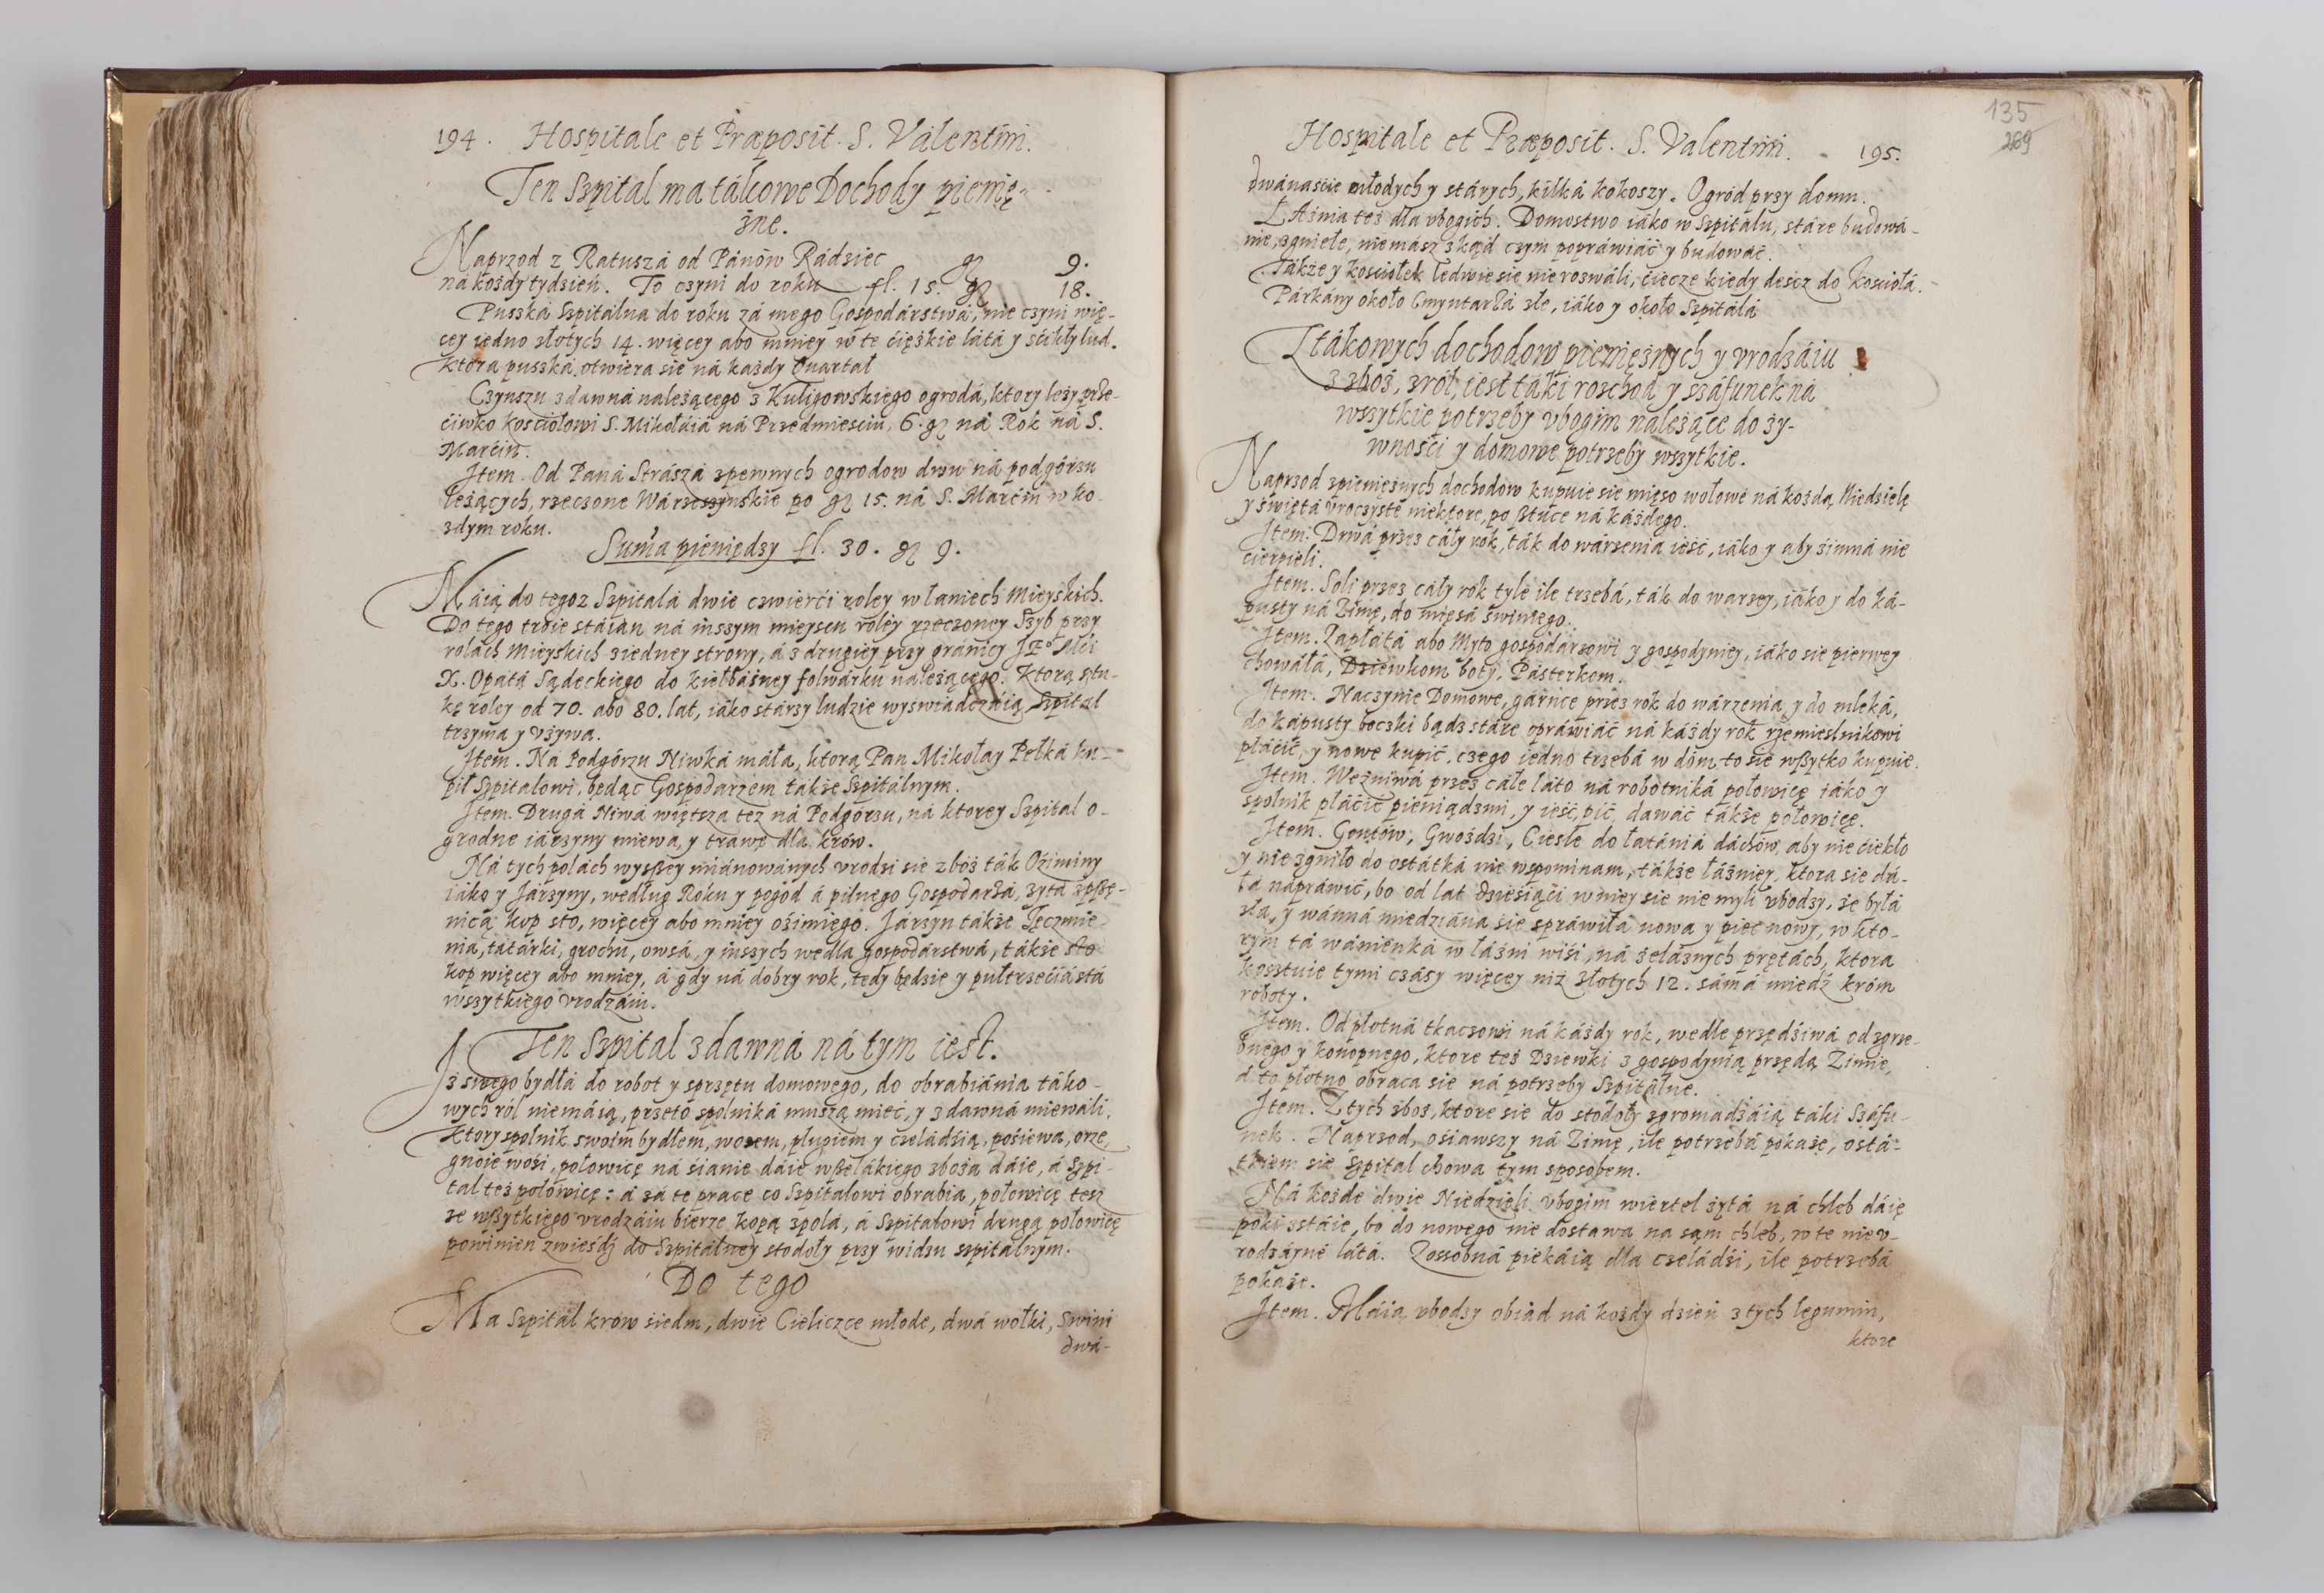 194. Hospitale et Præposit. S. Valentini.
Ten Szpital ma tákowe Dochody pienię-
żne.
Naprzod z Ratuszá od Pánów Rádziec gr 9.
ná kożdy tydzień. To czyni do roku fl. 15. gr 18.
Puszká Szpitálna do roku zá mego Gospodárstwá, nie czyni wię-
cey iedno złotych 14. więcey abo mniey w te ćiężkie látá y śćikły lud.
Ktora puszká otwiera sie ná każdy Quartał
Czynszu zdawná należącego z Kuligowskiego ogrodá, ktory leży prze-
ćiwko Kośćiołowi S. Mikołáiá ná Przedmieśćiu, 6. gr ná Rok ná S.
Marćin.
Item. Od Páná Strászá zpewnych ogrodow dwu ná podgórzu
leżących, rzeczone Wárzeszyńskie po gr 15. ná S. Marćin w ko-
żdym roku.
Suma pieniędzy fl. 30. gr 9.
Máią do tegoz Szpitalá dwie czwierći roley w łaniech Mieyskich.
Do tego troie stáiań ná inszym mieyscu roley rzeczoney Szyb przy
rolach Mieyskich ziedney strony, á z drugiey przy gránicy Je° Mći
X. Opatá Sądeckiego do kiełbáśney folwárku należącego. Ktorą sztu-
kę roley od 70. abo 80. lat, iáko stárszy ludzie wyświadczáią, Szpital
trzyma y vżywa.
Item. Ná Podgórzu Niwká máła, ktorą Pan Mikołay Pełká ku-
pił Szpitalowi, będąc Gospodarzem tákże Szpitálnym.
Item. Druga Niwá więtsza też ná Podgórzu, ná ktorey Szpital o-
grodne iárzyny miewa y trawę dla krów.
Ná tych polách wyßßey miánowánych vrodzi sie zboż ták Oźiminy
iáko y Járzyny, według Roku y pogod á pilnego Gospodarßá, żytá zpßße-
nicą kop sto, więcey abo mniey oźimiego. Járzyn tákże Jęczmie-
niá, tatárki, grochu, owsá, y inszych wedla gospodárstwá, tákże sto
kop więcey abo mniey, á gdy ná dobry rok, tedy będzie y pułtrzećiá stá
wszytkiego vrodzáiu.
Ten Szpital zdawná ná tym iest.
Iż swego bydłá do robot y sprzętu domowego, do obrabiánia táko-
wych ról niemáią, przeto spolniká muszą mieć, y zdawná miewáli.
Ktory spolnik swoim bydłem, wozem, pługiem y czeládźią, pośiewa, orze,
gnoie woźi, połowicę ná śianie dáie wßelákiego zboża dáie, á Szpi-
tal też połowicę: á zá tę pracę co Szpitalowi obrabia, połowicę tesz
ze wßytkiego vrodzáiu bierze kopą zpolá, á Szpitalowi drugą połowicę
powinien zwieśdź do Szpitálney stodoły przy widzu szpitalnym.
Do tego
Ma Szpital krow śiedm, dwie Cieliczce młode, dwá wołki, Swini
dwá-
135
269
Hospitale et Præposit. S. Valentini. 195.
dwánaśćie młodych y stárych, kilká kokoszy. Ogród przy domu.
ŁAźnia też dla vbogich. Domostwo iáko w Szpitalu, stáre budowá-
nie, zgniełe, niemász zkąd czym popráwiáć y budowáć.
Tákże y kośćiołek ledwie sie nie rozwáli, ćiecze kiedy descz do Kośćiołá.
Párkány około Cmyntarßá złe, iáko y około Szpitalá
Z tákowych dochodow pieniężnych y vrodzáiu
z zboż, zról, iest táki rozchod y száfunek ná
wszytkie potrzeby vbogim należące do ży-
wnośći y domowe potrzeby wszytkie.
Naprzod zpieniężnych dochodow kupuie sie mięso wołowe ná kożdą Niedzielę
y świętá vroczyste niektore, po ßtuce ná káżdego.
Item. Drwá przez cáły rok, ták do wárzenia ieść, iáko y aby źimná nie
ćierpieli.
Item. Soli przez cáły rok tyle ile trzebá, ták do warzey, iáko y do ká-
pusty ná Zimę, do mięsá świniego.
Item. Zapłátá abo Myto gospodárzowi y gospodyniey, iáko sie pierwey
chowáłá, Dziewkom boty, Pásterkom.
Item. Naczynie Domowe, gárnce przez rok do wárzenia y do mleká,
do kápusty beczki bądz stáre opráwiáć ná káżdy rok rzemieslnikowi
płáćić, y nowe kupić, czego iedno trzebá w dóm to sie wßytko kupuie.
Item. Weżniwá przez cáłe láto ná robotniká połowicę iáko y
spolnik płáćić pieniądzmi, y ieść, pić, dawáć tákże połowicę.
Item. Gontów, Gwoździ, Ciesle do łatániá dáchów, aby nie ćiekło
y nie zgniło do ostátká nie wspominam, tákże łáźniey, ktora sie dá-
łá nápráwić, bo od lat dzieśiąći w niey sie nie myli vbodzy, że byłá
zła, y wánná miedziána sie spráwiłá nowa y piec nowy, w kto-
rym tá wánienká w łáźni wiśi, ná żeláznych prętách, ktora
kosztuie tymi czásy więcey niż złotych 12. sámá miedź króm
roboty.
Item. Od płotná tkaczowi ná káżdy rok, wedle przędźiwá od zgrze-
bnego y konopnego, ktore też Dziewki z gospodynią przędą Zimie,
á to płotno obraca sie ná potrzeby Szpitálne.
Item. Z tych zboż, ktore sie do stodoły zgromadzáią táki Száfu-
nek. Naprzod, ośiawszy ná Zimę, ile potrzebá pokaże, ostá-
tkiem sie Szpital chowa tym sposobem.
Ná kożde dwie Niedzieli vbogim wiertel żytá ná chleb dáię
poki zstáie, bo do nowego nie dostawa na sąm chleb, w te niev-
rodzáyné látá. Zossobná piekáią dla czeládźi, ile potrzebá
pokaże.
Item. Máią vbodzy obiád ná kożdy dzień z tych legumin,
ktore